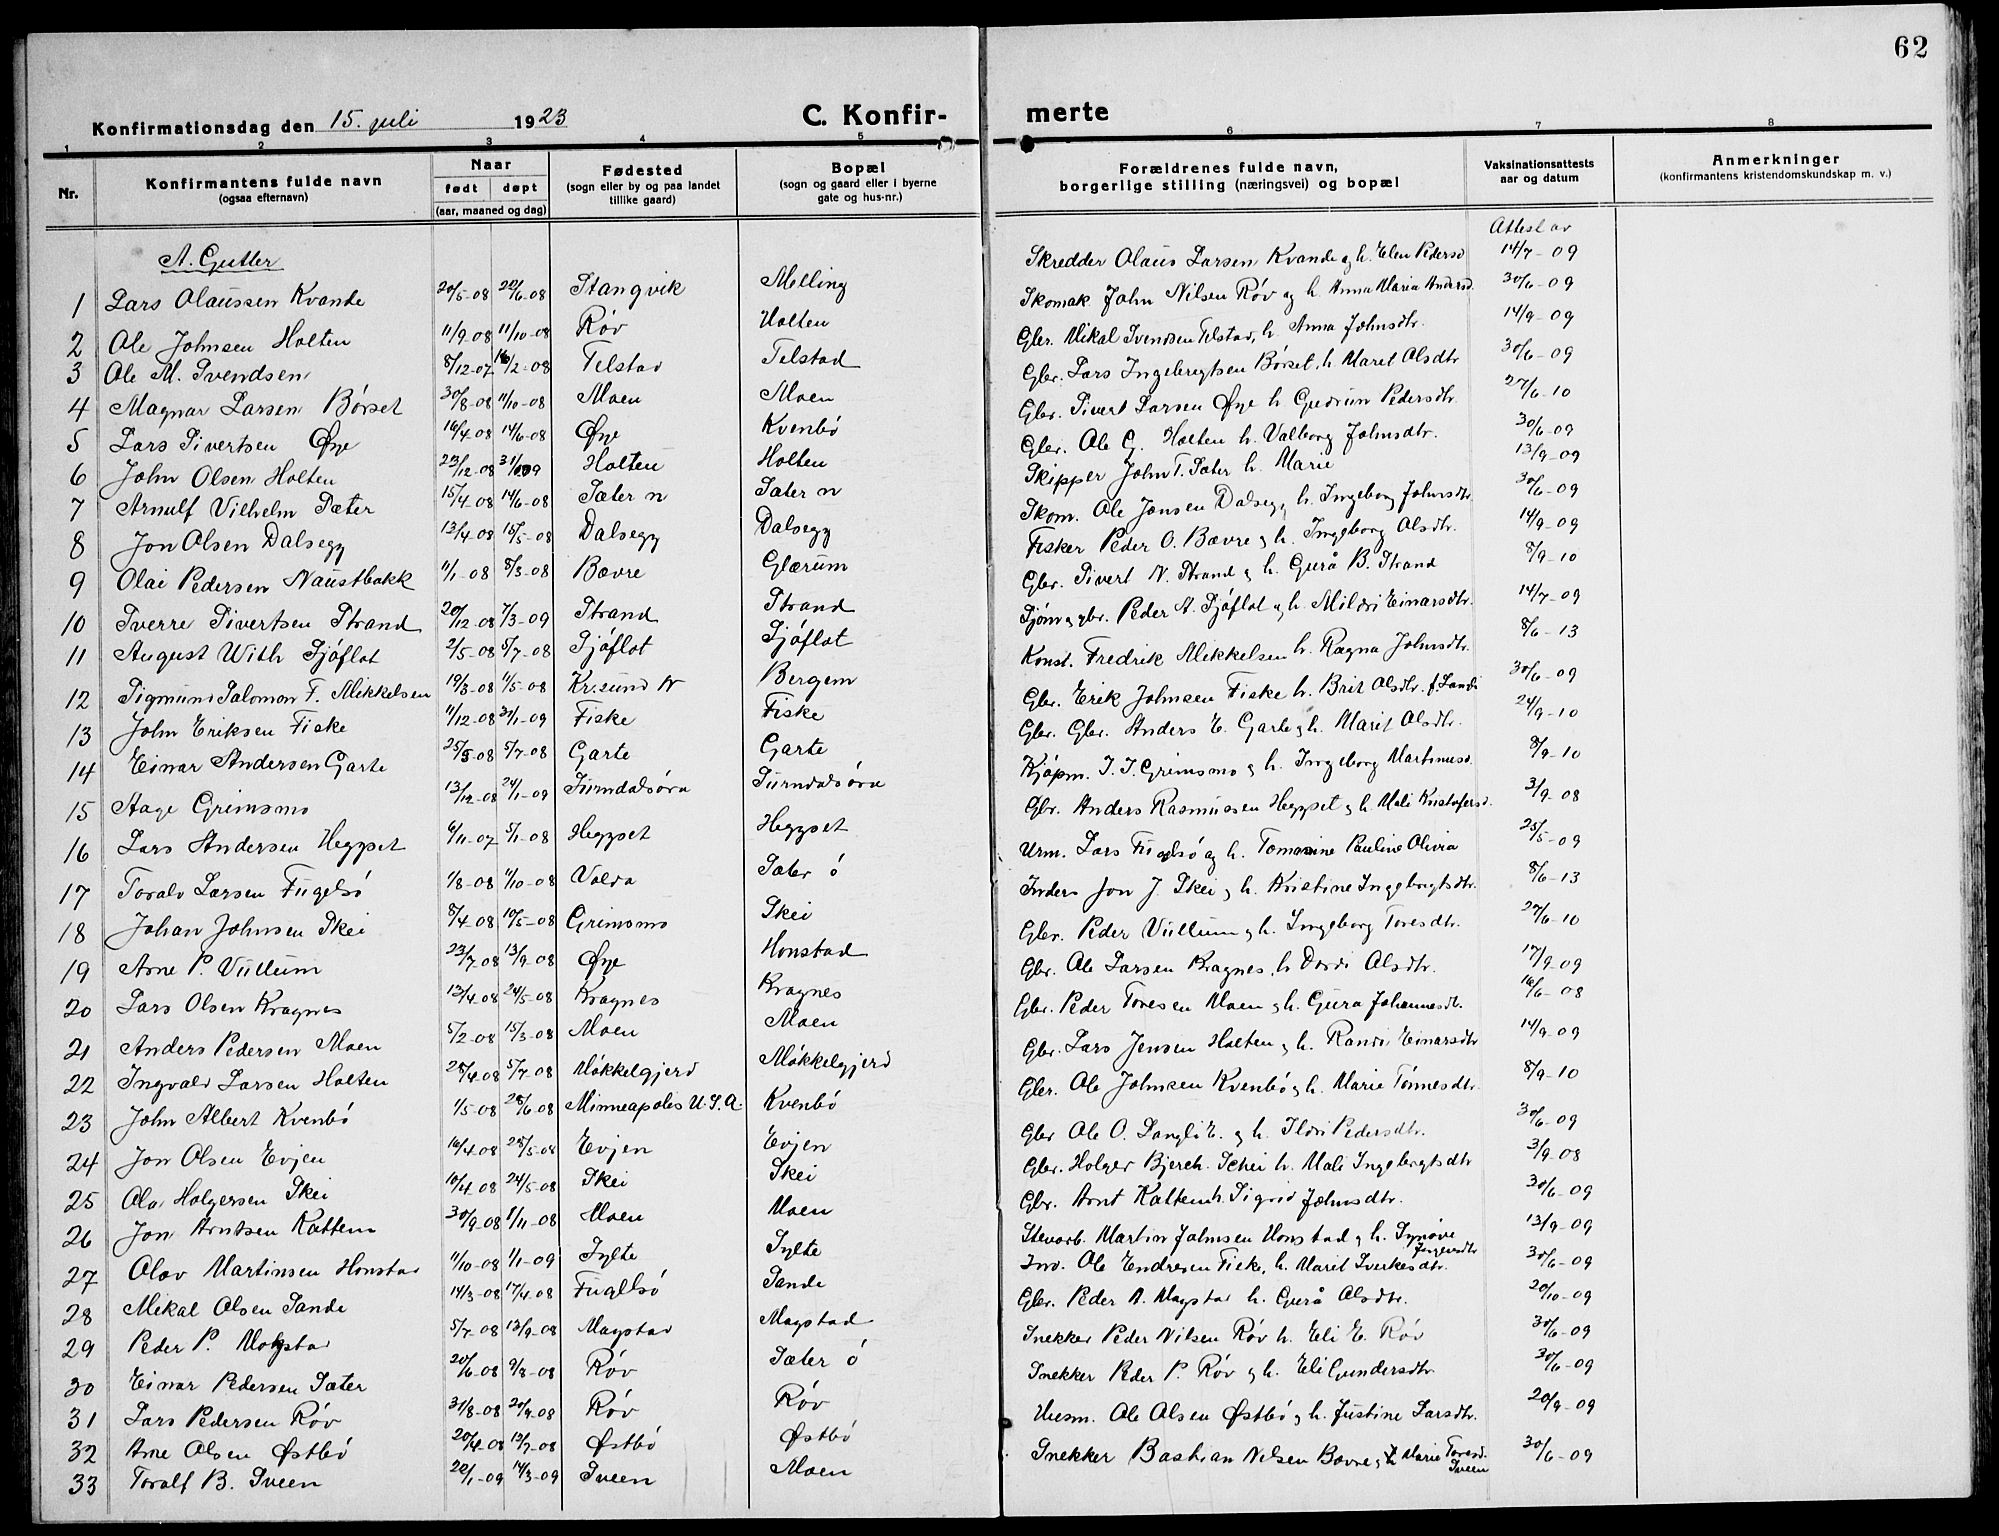 62
Konfirmationsdag den 15. juli 1923
C. Konfir-
merte
1 2 3 4 5 6 7 8
Nr.
Konfirmantens fulde navn
(ogsaa efternavn)
Naar
født døpt
(aar, maaned og dag)
Fødested
(sogn eller by og paa landet
tillike gaard)
Bopæl
(sogn og gaard eller i byerne
gate og hus-nr.)
Forældrenes fulde navn,
borgerlige stilling (næringsvei) og bopæl
Vaksinationsattests
aar og datum
Anmerkninger
(konfirmantens kristendomskundskap m. v.)
A. Gutter
Attest av
1 Lars Olaussen Kvande 20/5-08 20/6-08 Stangvik Melling Skredder Olaus Larsen Kvande og h. Elen Pedersd 14/7-09
2 Ole Johnsen Holten 11/9-08 11/10-08 Røv Holten Skomak John Nilsen Røv og h. Anna Maria Andersd. 30/6-09
3 Ole M. Svendsen 8/12-07 16/2-08 Telstad Telstad Gbr. Mikal Svendsen Telstad, h. Anna Johnsdtr. 14/9-09
4 Magnar Larsen Børset 30/8-08 11/10-08 Moen Moen Gbr. Lars Ingebrigtsen Børset, h. Maret Olsdtr 30/6-09
5 Lars Sivertsen Øye 16/4-08 14/6-08 Øye Kvenbø Gbr. Sivert Larsen Øye h. Gudrun Pedersdtr. 27/6-10
6 John Olsen Holten 23/12-08 31/1-09 Holten Holten Gbr. Ole G. Holten h. Valborg Johnsdtr. 30/6-09
7 Arnulf Vilhelm Sæter 15/4-08 14/6-08 Sæter n Sæter n Skipper John T. Sæter h. Marie 13/9-09
8 Jon Olsen Dalsegg 13/4-08 15/5-08 Dalsegg Dalsegg Skom. Ole Jonsen Dalsegg h. Ingeborg Johnsdtr. 30/6-09
9 Olai Pedersen Naustbakk 11/1-08 8/3-08 Bævre Glærum Fisker Peder O. Bævre og h. Ingeborg Olsdtr. 14/9-09
10 Sverre Sivertsen Strand 20/12-08 7/3-09 Strand Strand Gbr. Sivert N. Strand og h. Gurå B. Strand 8/9-10
11 August With Sjøflot 2/5-08 5/7-08 Sjøflot Sjøflot Sjøm og gbr. Peder A. Sjøflot og h. Mildri Einarsdtr. 14/7-09
12 Sigmund Salomon F. Mikkelsen 19/3-08 11/5-08 Kr.sund N Bergem Konst. Fredrik Mikkelsen h. Ragna Johnsdtr. 8/6-13
13 John Eriksen Fiske 11/12-08 31/1-09 Fiske Fiske Gbr. Erik Johnsen Fiske h. Brit Olsdtr. f. Sande 30/6-09
14 Einar Andersen Garte 25/3-08 5/7-08 Garte Garte Gbr. Gbr. Anders E. Garte og h. Marit Olsdtr. 24/9-10
15 Aage Grimsmo 13/12-08 24/1-09 Surndalsøra Surndalsøra Kjøpm. J. J. Grimsmo og h. Ingeborg Martinusd. 8/9-10
16 Lars Andersen Heggset 6/11-07 5/1-08 Heggset Heggset Gbr. Anders Rasmussen Heggset og h. Mali Kristofersd. 3/9-08
17 Toralv Larsen Fugelsø 1/8-08 11/10-08 Valda Sæter ø Urm. Lars Fugelsø og h. Tomasine Pauline Olivia 25/5-09
18 Johan Johnsen Skei 8/4-08 10/5-08 Grimsmo Skei Inders Jon J. Skei og h. Kristine Ingebrigtsdtr. 8/6-13
19 Arne P. Vullum 23/7-08 13/9-08 Øye Honstad Gbr. Peder Vullum og h. Ingeborg Toresdtr. 27/6-10
20 Lars Olsen Kragnes 13/4-08 24/5-08 Kragnes Kragnes Gbr. Ole Larsen Kragnes, h Dordi Olsdtr. 17/9-09
21 Anders Pedersen Moen 5/2-08 15/3-08 Moen Moen Gbr. Peder Toresen Moen og h. Gura Johannesdt. 16/6-08
22 Ingvald Larsen Holten 25/4-08 5/7-08 Møkkelgjerd Møkkelgjerd Gbr. Lars Jensen Holten og h. Randi Einarsdtr 14/9-09
23 John Albert Kvenbø 1/5-08 28/6-08 Minneapolis U.S.A. Kvenbø Gbr. Ole Johnsen Kvenbø og h. Marie Tønnesdtr. 8/9-10
24 Jon Olsen Evjen 16/4-08 28/5-08 Evjen Evjen Gbr Ole O. Langli E. og h. Ildri Pedersdtr. 30/6-09
25 Ola Holgersen Skei 10/4-08 24/5-08 Skei Skei Gbr. Holger Bjerch. Schei h. Mali Ingebrigtsdtr 3/9-08
26 Jon Arntsen Kattem 30/9-08 1/11-08 Moen Moen Gbr. Arnt Kattem h. Sigrid Johnsdtr. 30/6-09
27 Olav Martinsen Honstad 11/10-08 1/1-09 Sylte Sylte Stenarb. Martin Johnsen Honstad og h. Synøve Ingersdtr 13/9-09
28 Mikal Olsen Sande 14/3-08 17/4-08 Fuglsø Sande Inv. Ole Endresen Fiske, h. Marit Sverkesdtr. 30/6-09
29 Peder P. Mogstad 5/7-08 13/9-08 Mogstad Mogstad Gbr. Peder A. Mogstad h. Gurå Olsdtr. 20/10-09
30 Einar Pedersen Sæter 20/6-08 9/8-08 Røv Sæter ø Snekker Peder Nilsen Røv h. Eli E. Røv 30/6-09
31 Lars Pedersen Røv 31/8-08 20/9-08 Røv Røv Snekker Peder P. Røv og h. Eli Gundersdtr. 30/6-09
32 Arne Olsen Østbø 20/4-08 13/7-08 Østbø Østbø Husm. Ole Olsen Østbø og h. Justine Larsdtr. 20/9-09
33 Toralf B. Sveen 20/1-09 14/3-09 Sveen Moen Snekker Bastian Nilsen Bævre og h Marie Toresd. Sveen 30/6-09